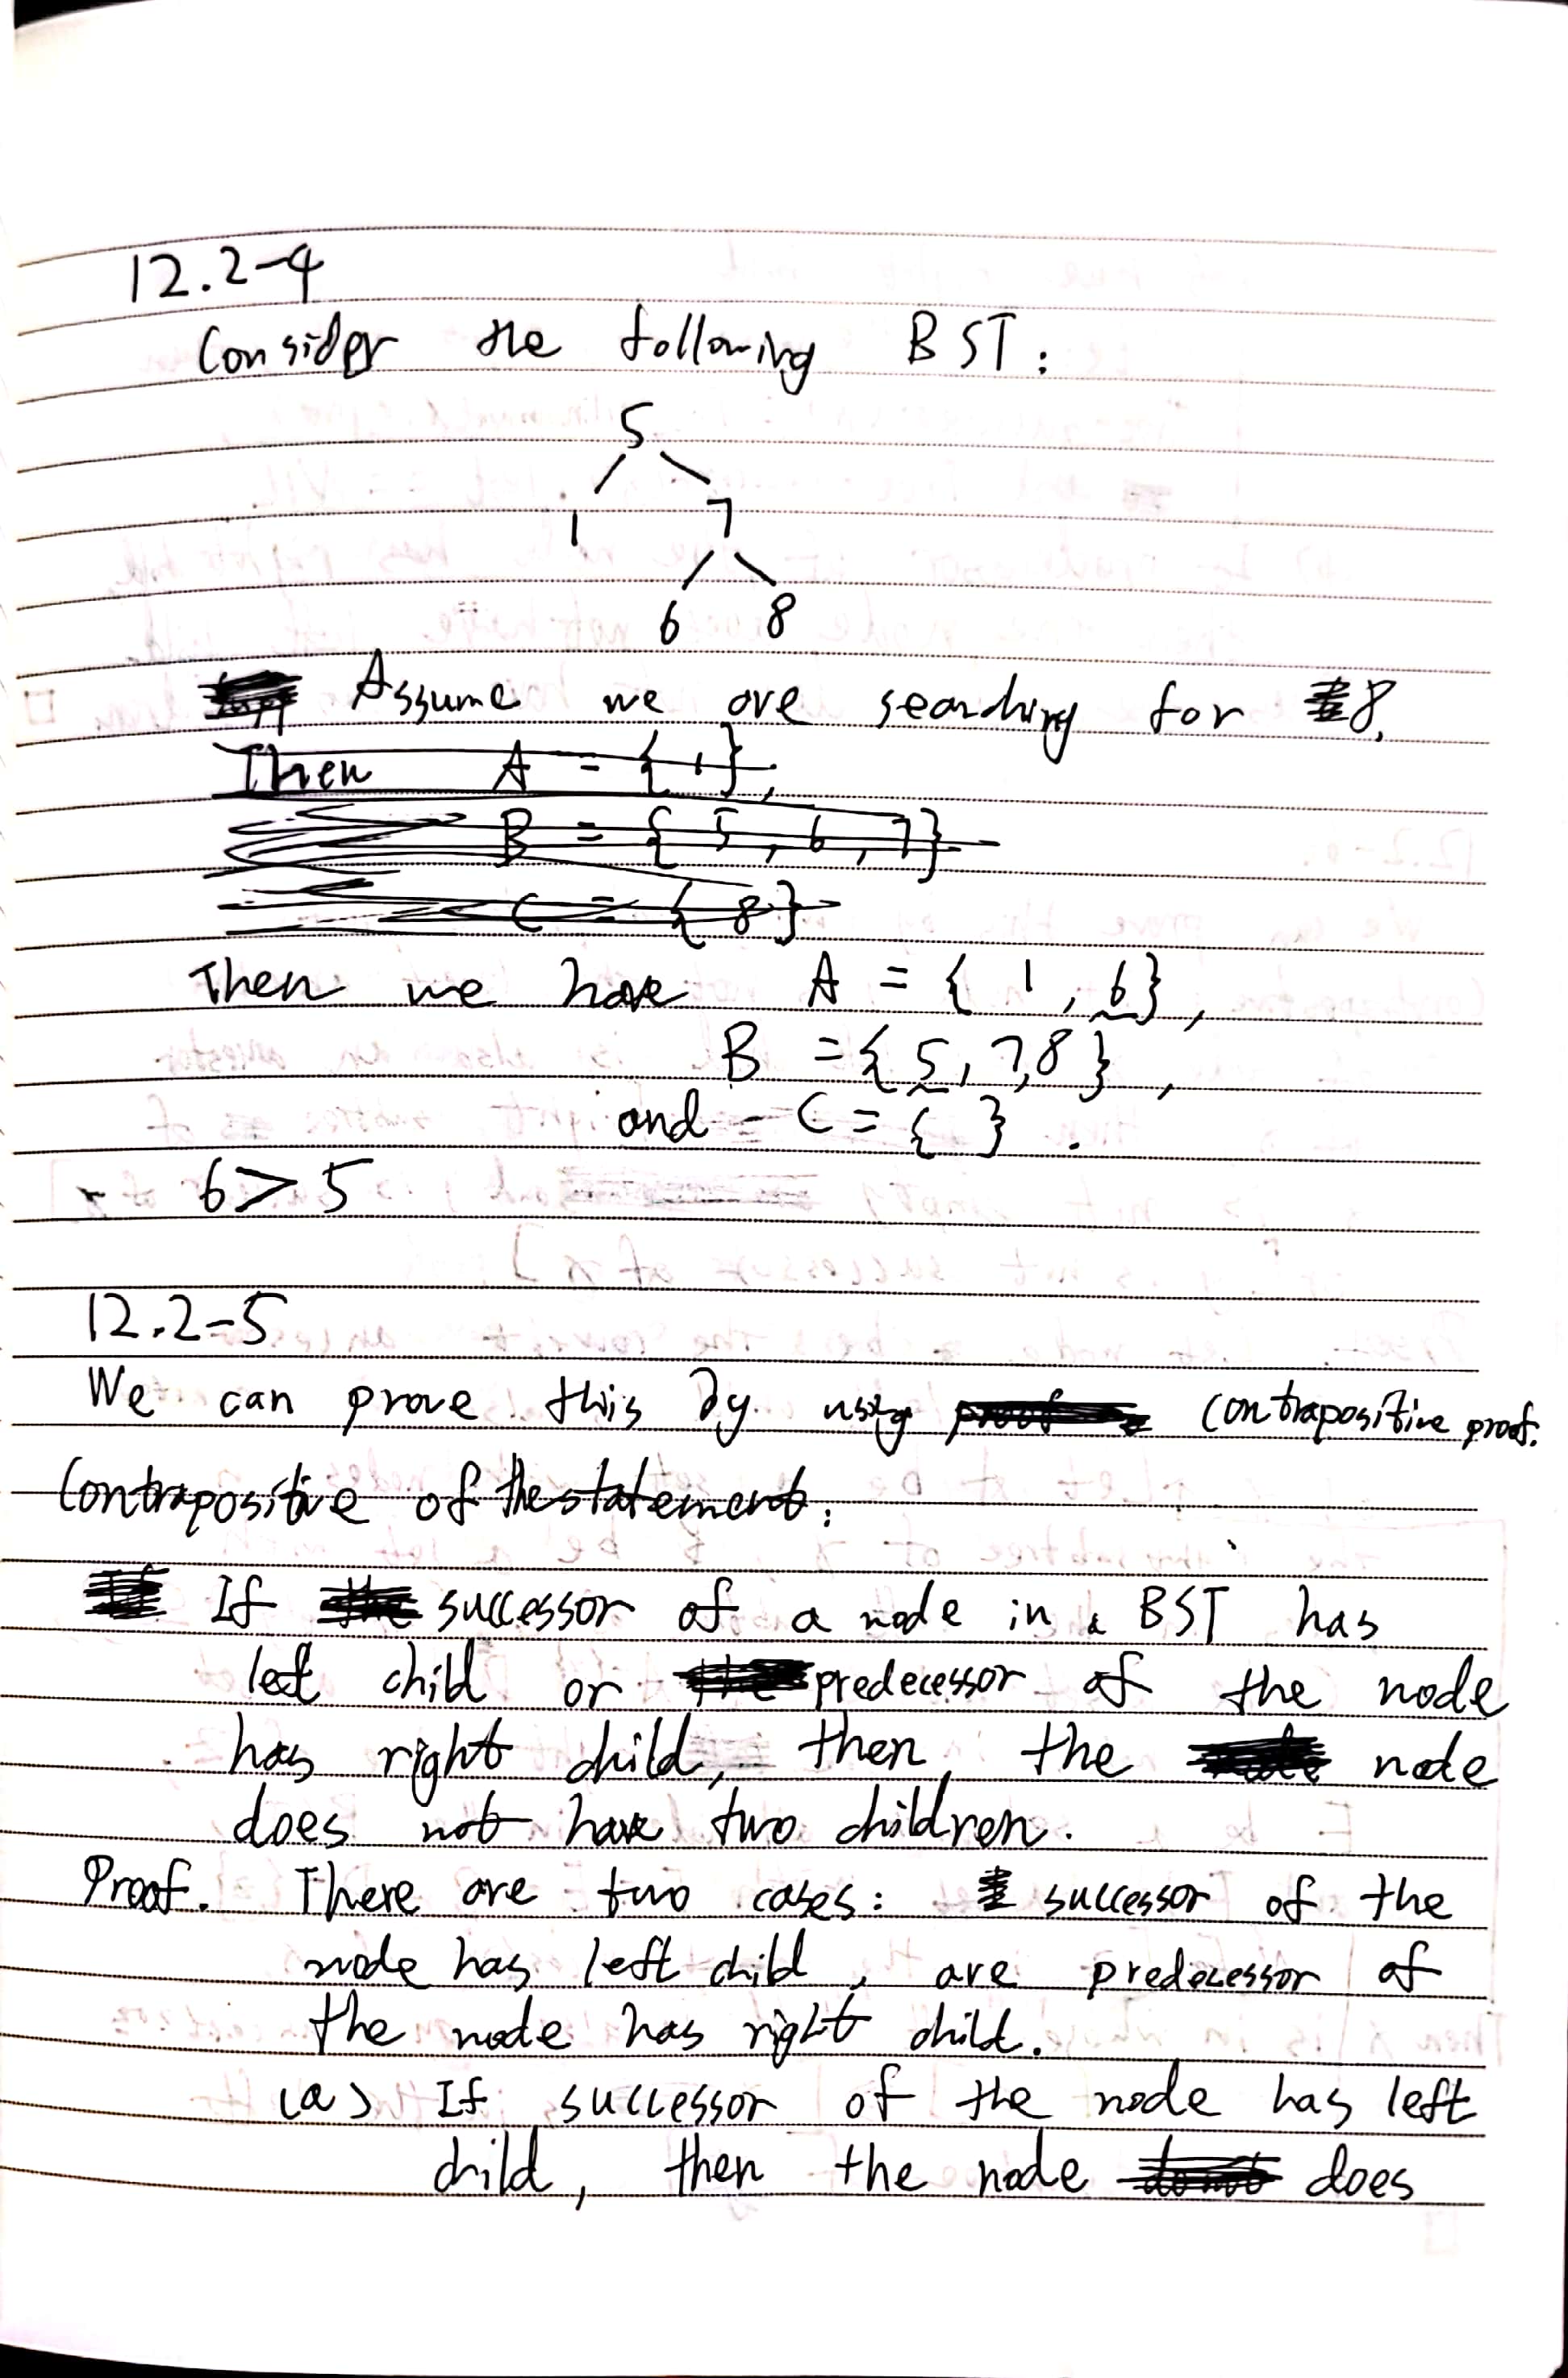 12.2-4
Consider the following BST:
5
1 7
6 8
Assume we are searching for 8.
Then A = { 1 },
B = { 5, 6, 7 }
C = { 8 }
Then we have A = { 1, 6 },
B = { 5, 7, 8 },
and C = { }.
6 > 5
12.2-5
We can prove this by using proof contrapositive proof.
Contrapositive of the statement:
If the successor of a node in a BST has
left child or the predecessor of the node
has right child, then the node
does not have two children.
Proof. There are two cases: successor of the
node has left child, are predecessor of
the node has right child.
(a) If successor of the node has left
child, then the node does